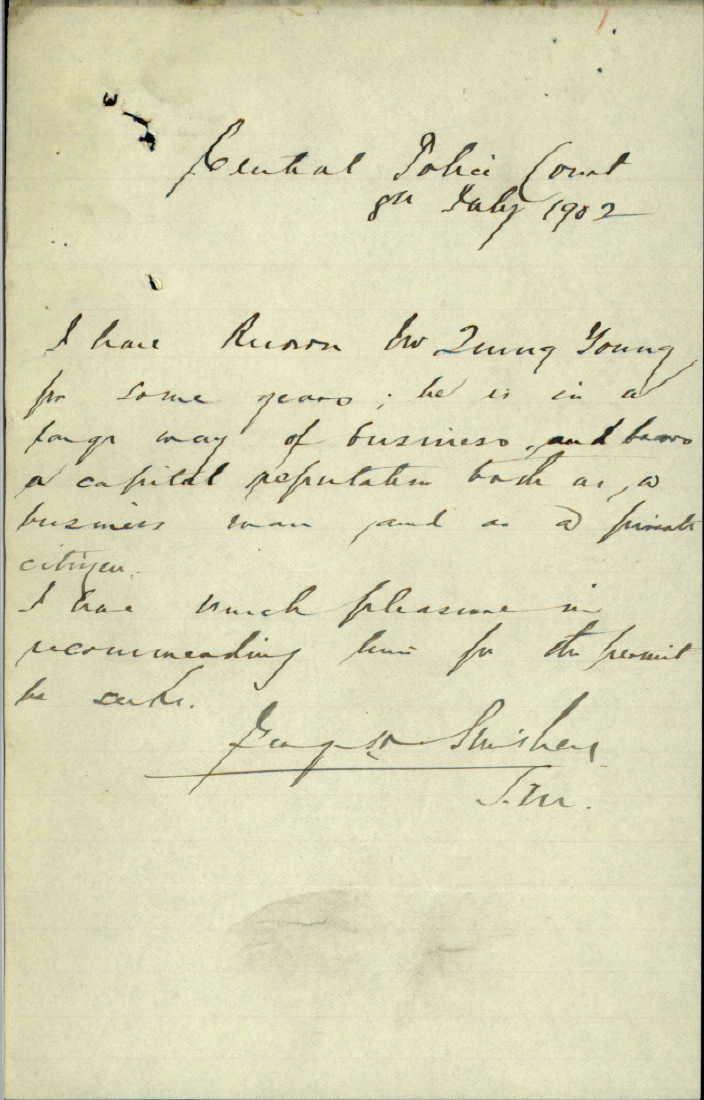 Central Police Court
8th July 1902
I have known Mr Quong Young
for some years; he is in a
large way of business, and bears
a capital reputation both as a
business man and as a private
citizen.
I have much pleasure in
recommending him for the permit
he seeks.
Smithers
S.M.